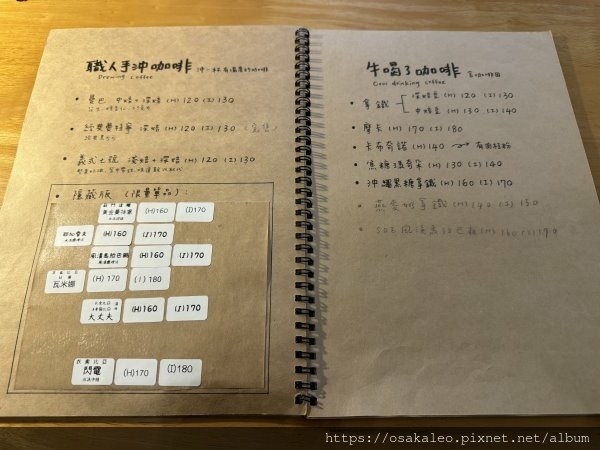 職人手沖咖啡 沖一杯有溫度的咖啡
Drewing coffee
• 曼巴 中焙+深焙 (H) 120 (I) 130
• 經典曼特寧 深焙 (H) 120 (I) 130
• 義式七號 淺焙+深焙 (H) 120 (I) 130
• 隱藏版 (限量單品):
黃金曼特寧 (H)160 (I)170
(H)160 (I)170
(H)160 (I)170
瓦米娜 (H)170 (I)180
大丈夫 (H)160 (I)170
衣索比亞
閃電 (H)170 (I)180
牛喝了咖啡
Cow drinking coffee
• 拿鐵 深焙豆 (H) 120 (I) 130
中焙豆 (H) 130 (I) 140
• 摩卡 (H) 170 (I) 180
• 卡布奇諾 (H) 140 → 有肉桂粉
• 焦糖瑪奇朵 (H) 130 (I) 140
• 沖繩黑糖拿鐵 (H) 160 (I) 170
• 燕麥奶拿鐵 (H) 140 (I) 150
(H) 160 (I) 170
https://osakaleo.pixnet.net/album